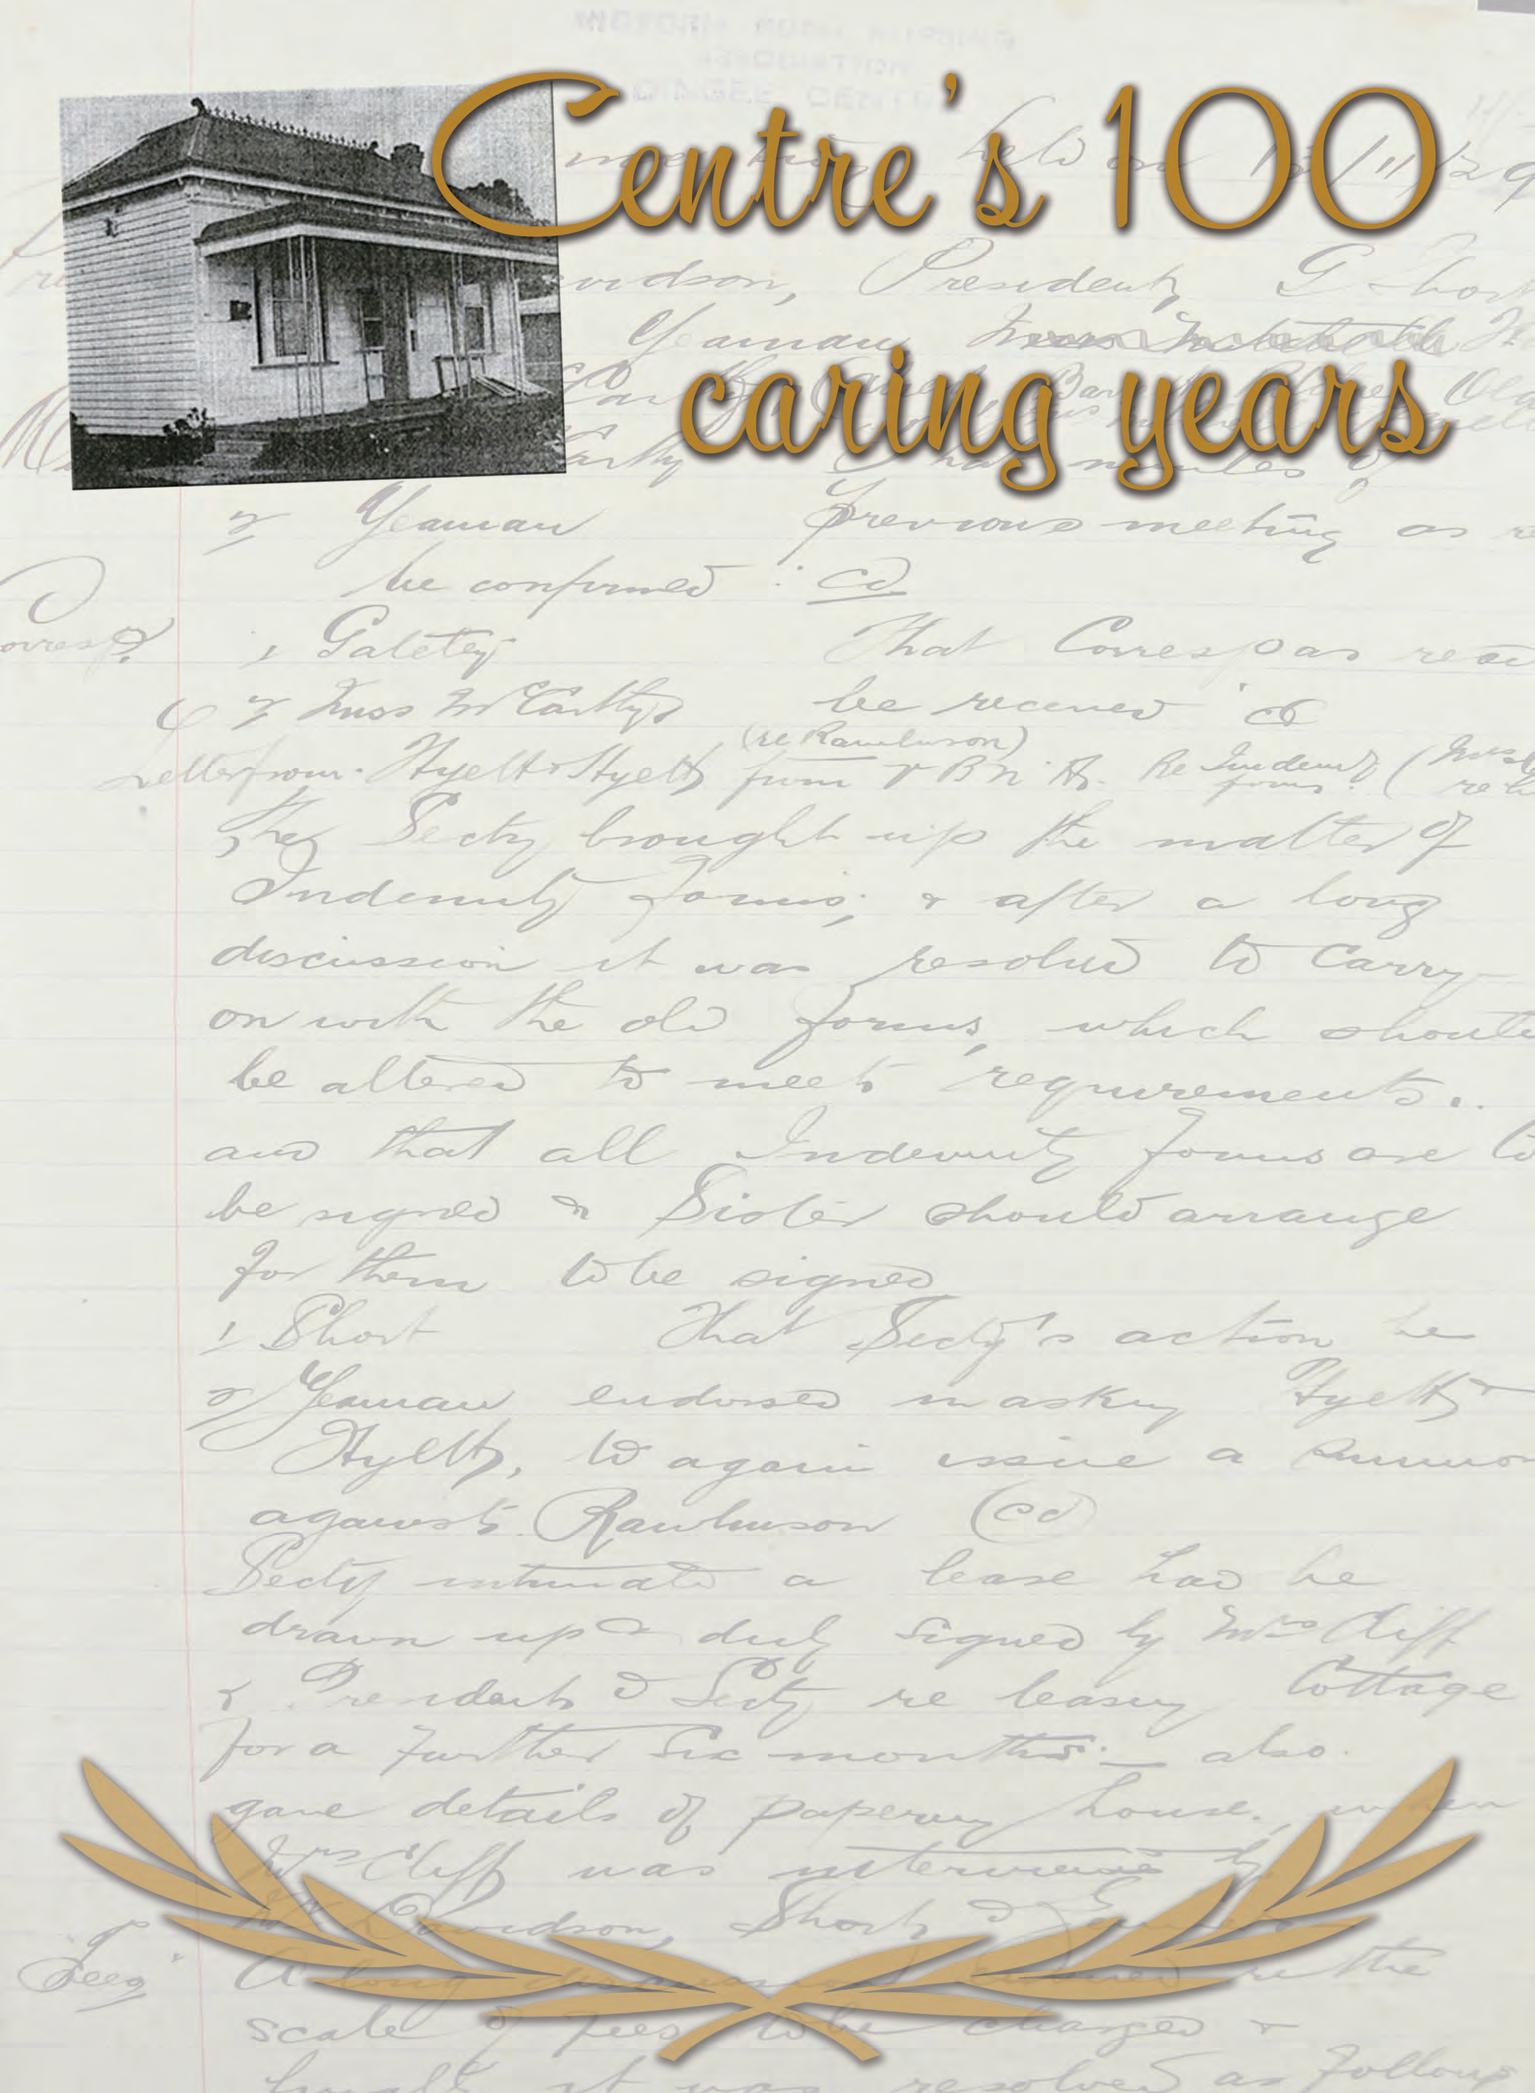 Centre's 100
caring years
held on 13/11/29
President, G Short
Yeaman
minutes of
2 Yeaman previous meeting as
be confirmed : cd
Corresp. 1 That Corresp as read
2 Miss McCarthy be received cd
(re Rawlinson)
Letter from Hyett & Hyett from V B N A. Re Indemnity forms
The Secty brought up the matter of
Indemnity forms, & after a long
discussion it was resolved to carry
on with the old forms, which should
be altered to meet requirements.
and that all Indemnity forms are to
be signed & Sister should arrange
for them to be signed
1 Short That Secty's action be
2 Yeaman endorsed in asking Hyett &
Hyett, to again issue a
against Rawlinson (cd)
Secty intimated a lease had be
drawn up & duly signed by Mrs Cliff
& President & Secty re leasing Cottage
for a further six months. also
gave details of papering house, when
Mrs Cliff was interviewed by
Mr Davidson, Short &
"Fees" A long discussion ensued re the
scale of fees to be charged &
it was resolved as follows